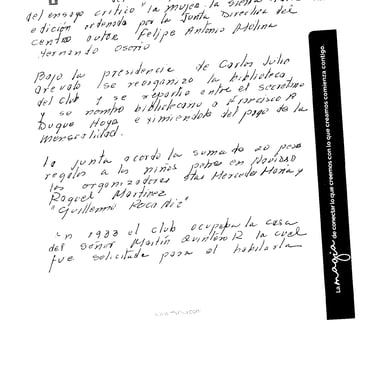 del ensayo critico "la mujer la sierra
edición ordenada por la Junta Directiva del
centro autor Felipe Antonio Molina
Hernando Osorio
Bajo la presidencia de Carlos Julio
Arevalo se reorganizo la biblioteca
del club y se repartio entre el secretario
y se nombro bibliotecario a Francisco A
Duque Hoya eximiendolo del pago de la
mensualidad.
La Junta acordo la suma de 20 pesos
regalos a los niños pobres en Navidad
los organizadores Stas Mercedes Mona y
Raquel Martinez
"Guillermo Roca Nie"
En 1933 el club ocupaba la casa
del Señor Martín Quintero R la cual
fue solicitada para el habitarla
La magia de conectar lo que creemos con lo que creamos comienza contigo.